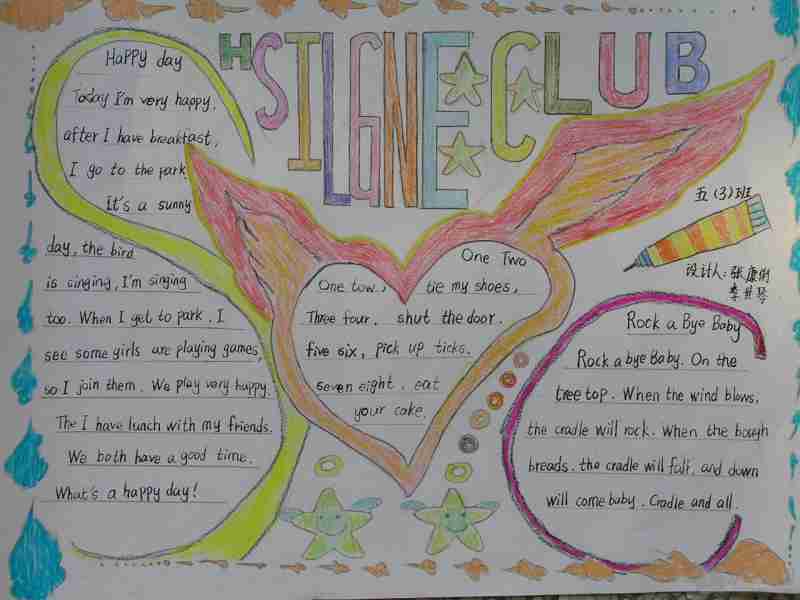 HSILGNE CLUB
Happy day
Today I'm very happy,
after I have breakfast,
I go to the park
It's a sunny
day, the bird
is cinging, I'm singing
too. When I get to park. I
see some girls are playing games,
so I join them. We play very happy.
The I have lunch with my friends.
We both have a good time.
What's a happy day!
One Two
One tow, tie my shoes,
Three four. shut the door.
five six, pick up ticks.
seven eight. eat
your cake.
五(3)班
设计人:张康
李
Rock a Bye Baby
Rock a bye Baby. On the
tree top. When the wind blows,
the cradle will rock. When the bough
breads. the cradle will fall, and down
will come baby. Cradle and all.